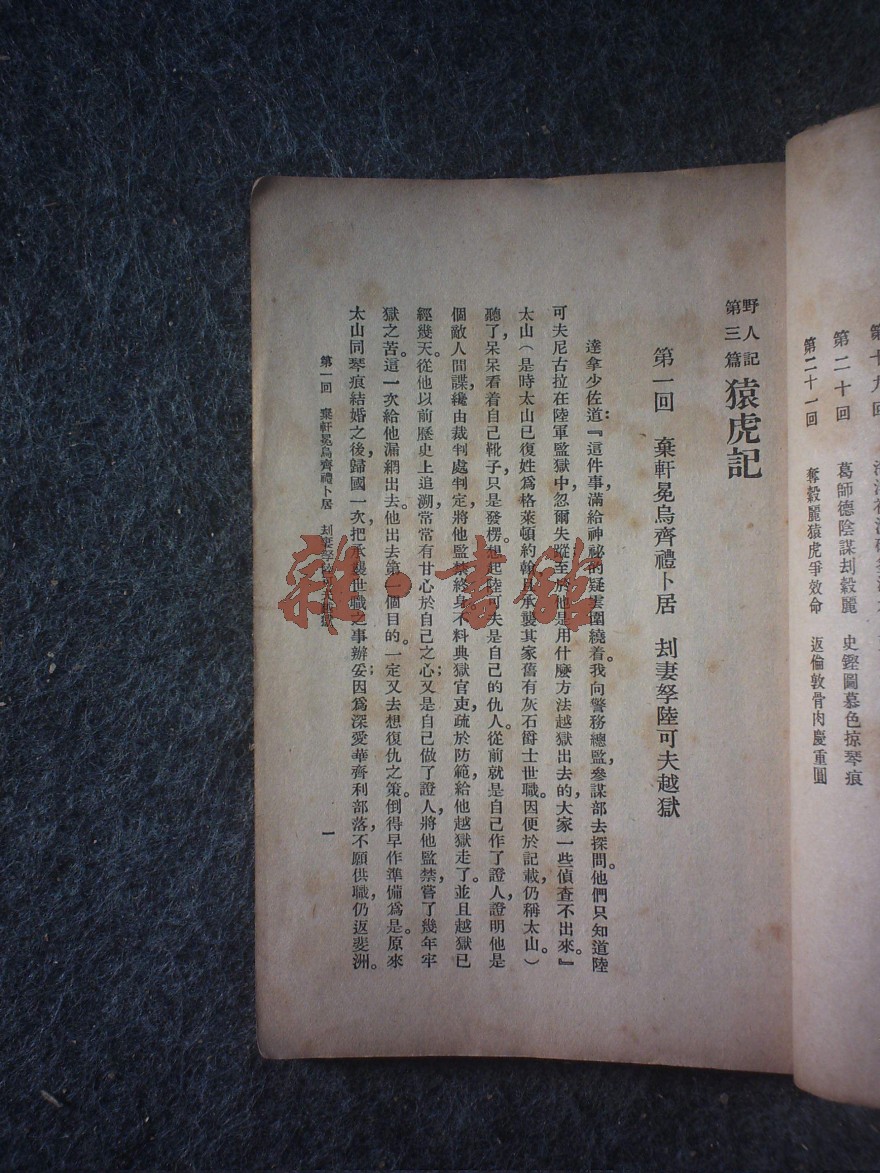 第二十回　葛師德陰謀刦穀麗　史鏗圖慕色掠琴痕
第二十一回　奪穀麗猿虎爭效命　返倫敦骨肉慶重圓
野人記
第三篇
猿虎記
第一回　棄軒冕烏齊禮卜居　刦妻孥陸可夫越獄
達拿少佐道：『這件事，滿給神祕的疑雲圍繞着。我向警務總監，參謀部去探問。他們只知道陸
可夫尼古拉在陸軍監獄中，忽爾失蹤。至於他是用什麼方法越獄出去的，大家一些偵查不出來。』
太山（是時太山已復姓爲格萊頓約翰且承襲其家舊有灰石爵士世職。因便於記載，仍稱太山。）
聽了，呆呆看着自己靴子，只是發楞。想起陸可夫是自己的仇人。從前就是自己作了證人，證明他是
個敵人間諜，纔由裁判處判定，將他監禁終身。不料典獄官吏，疏於防範，給他越獄走了。並且越獄已
經幾天。從他以前歷史上追溯，常常有甘心於自己之心；又是自己做了證人，將他監禁，嘗了幾年牢
獄之苦。這一次給他漏網出去。他出去第一個目的。一定又去想復仇之策。倒得早作準備爲是。原來
太山同琴痕結婚之後，歸國一次，把承襲世職之事辦妥；因爲深愛華齊利部落，不願供職，仍返斐洲。
第一回　棄軒冕烏齊禮卜居　刦妻孥陸可夫越獄
一
雜·書館